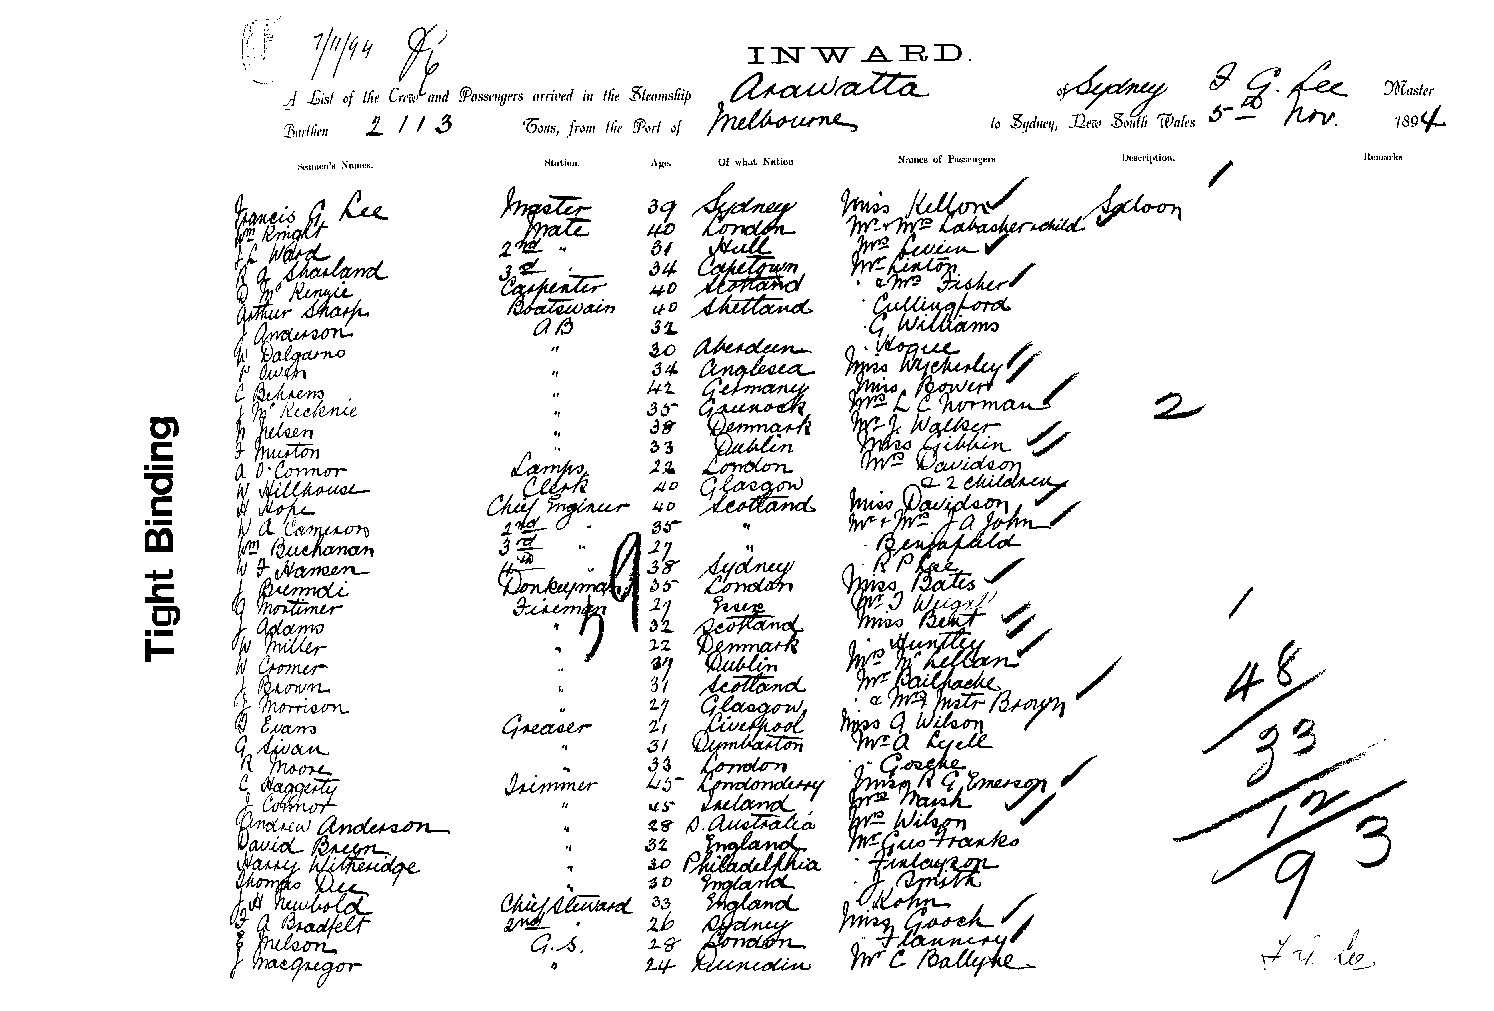 7/11/94
INWARD.
A List of the Crew and Passengers arrived in the Steamship Arawatta of Sydney F G. Lee Master
Burthen 2113 Tons, from the Port of Melbourne to Sydney, New South Wales 5th Nov. 1894
Seamen's Names. Station. Age. Of what Nation Names of Passengers Description. Remarks
Francis G Lee Master 39 Sydney Miss Kellow Saloon 1
Wm Knight Mate 40 London Mr & Mrs Labasher & child
J L Ward 2nd " 31 Hull Mrs Levien
R G Sharland 3rd " 34 Capetown Mr Linton
D McKenzie Carpenter 40 Scotland " & Mrs Fisher
Arthur Sharp Boatswain 40 Shetland " Cullingford
J Anderson AB 32 " G Williams
W Dalgarno " 30 Aberdeen " Hogue
Owen " 34 Anglesea Miss Wycherley
C Behrens " 42 Germany Miss Bowen
J McKechnie " 35 Greenock Mrs L C Norman 2
N Nelsen " 38 Denmark Mr J. Walker
F Muston " 33 Dublin Miss Gibbin
A O'Connor Lamps 22 London Mrs Davidson
W Hillhouse Clerk 40 Glasgow & 2 children
H Hope Chief Engineer 40 Scotland Miss Davidson
W A Cameron 2nd " 35 " Mr & Mrs J A John
Wm Buchanan 3rd " 27 " " Benjafield
W F Hansen 4th 38 Sydney " R P Lee
J Donkeyman 35 London Miss Bates
G Mortimer Fireman 27 Essex Mr T Wright 1
J Adams " 32 Scotland Miss Bent
W Miller " 22 Denmark " Huntley
W Cromer " 39 Dublin Mrs McLellan
J Brown " 31 Scotland Mr Bailhache
J Morrison " 27 Glasgow " & Mrs Mstr Brown
B Evans Greaser 21 Liverpool Miss A Wilson
G Sivan " 31 Dumbarton Mr A Lyell
R Moore " 33 London " Gosche
C Haggerty Trimmer 25 Londonderry Miss R G Emerson
J Connor " 45 Ireland Mrs Marsh
Andrew Anderson " 28 S. Australia Mrs Wilson
David Breen " 32 England Mr Gus Franks
Harry Witheridge " 30 Philadelphia " Finlayson
Thomas Dee " 30 England " J Smith
J H Newbold Chief Steward 33 England " Kohn
F A Bradfelt 2nd " 26 Sydney Miss Gooch
J Nelson G.S. 28 London " Flannery
J MacGregor " 24 Dunedin Mr C Ballyne
9
48
33
12
93
F G. Lee
Tight Binding